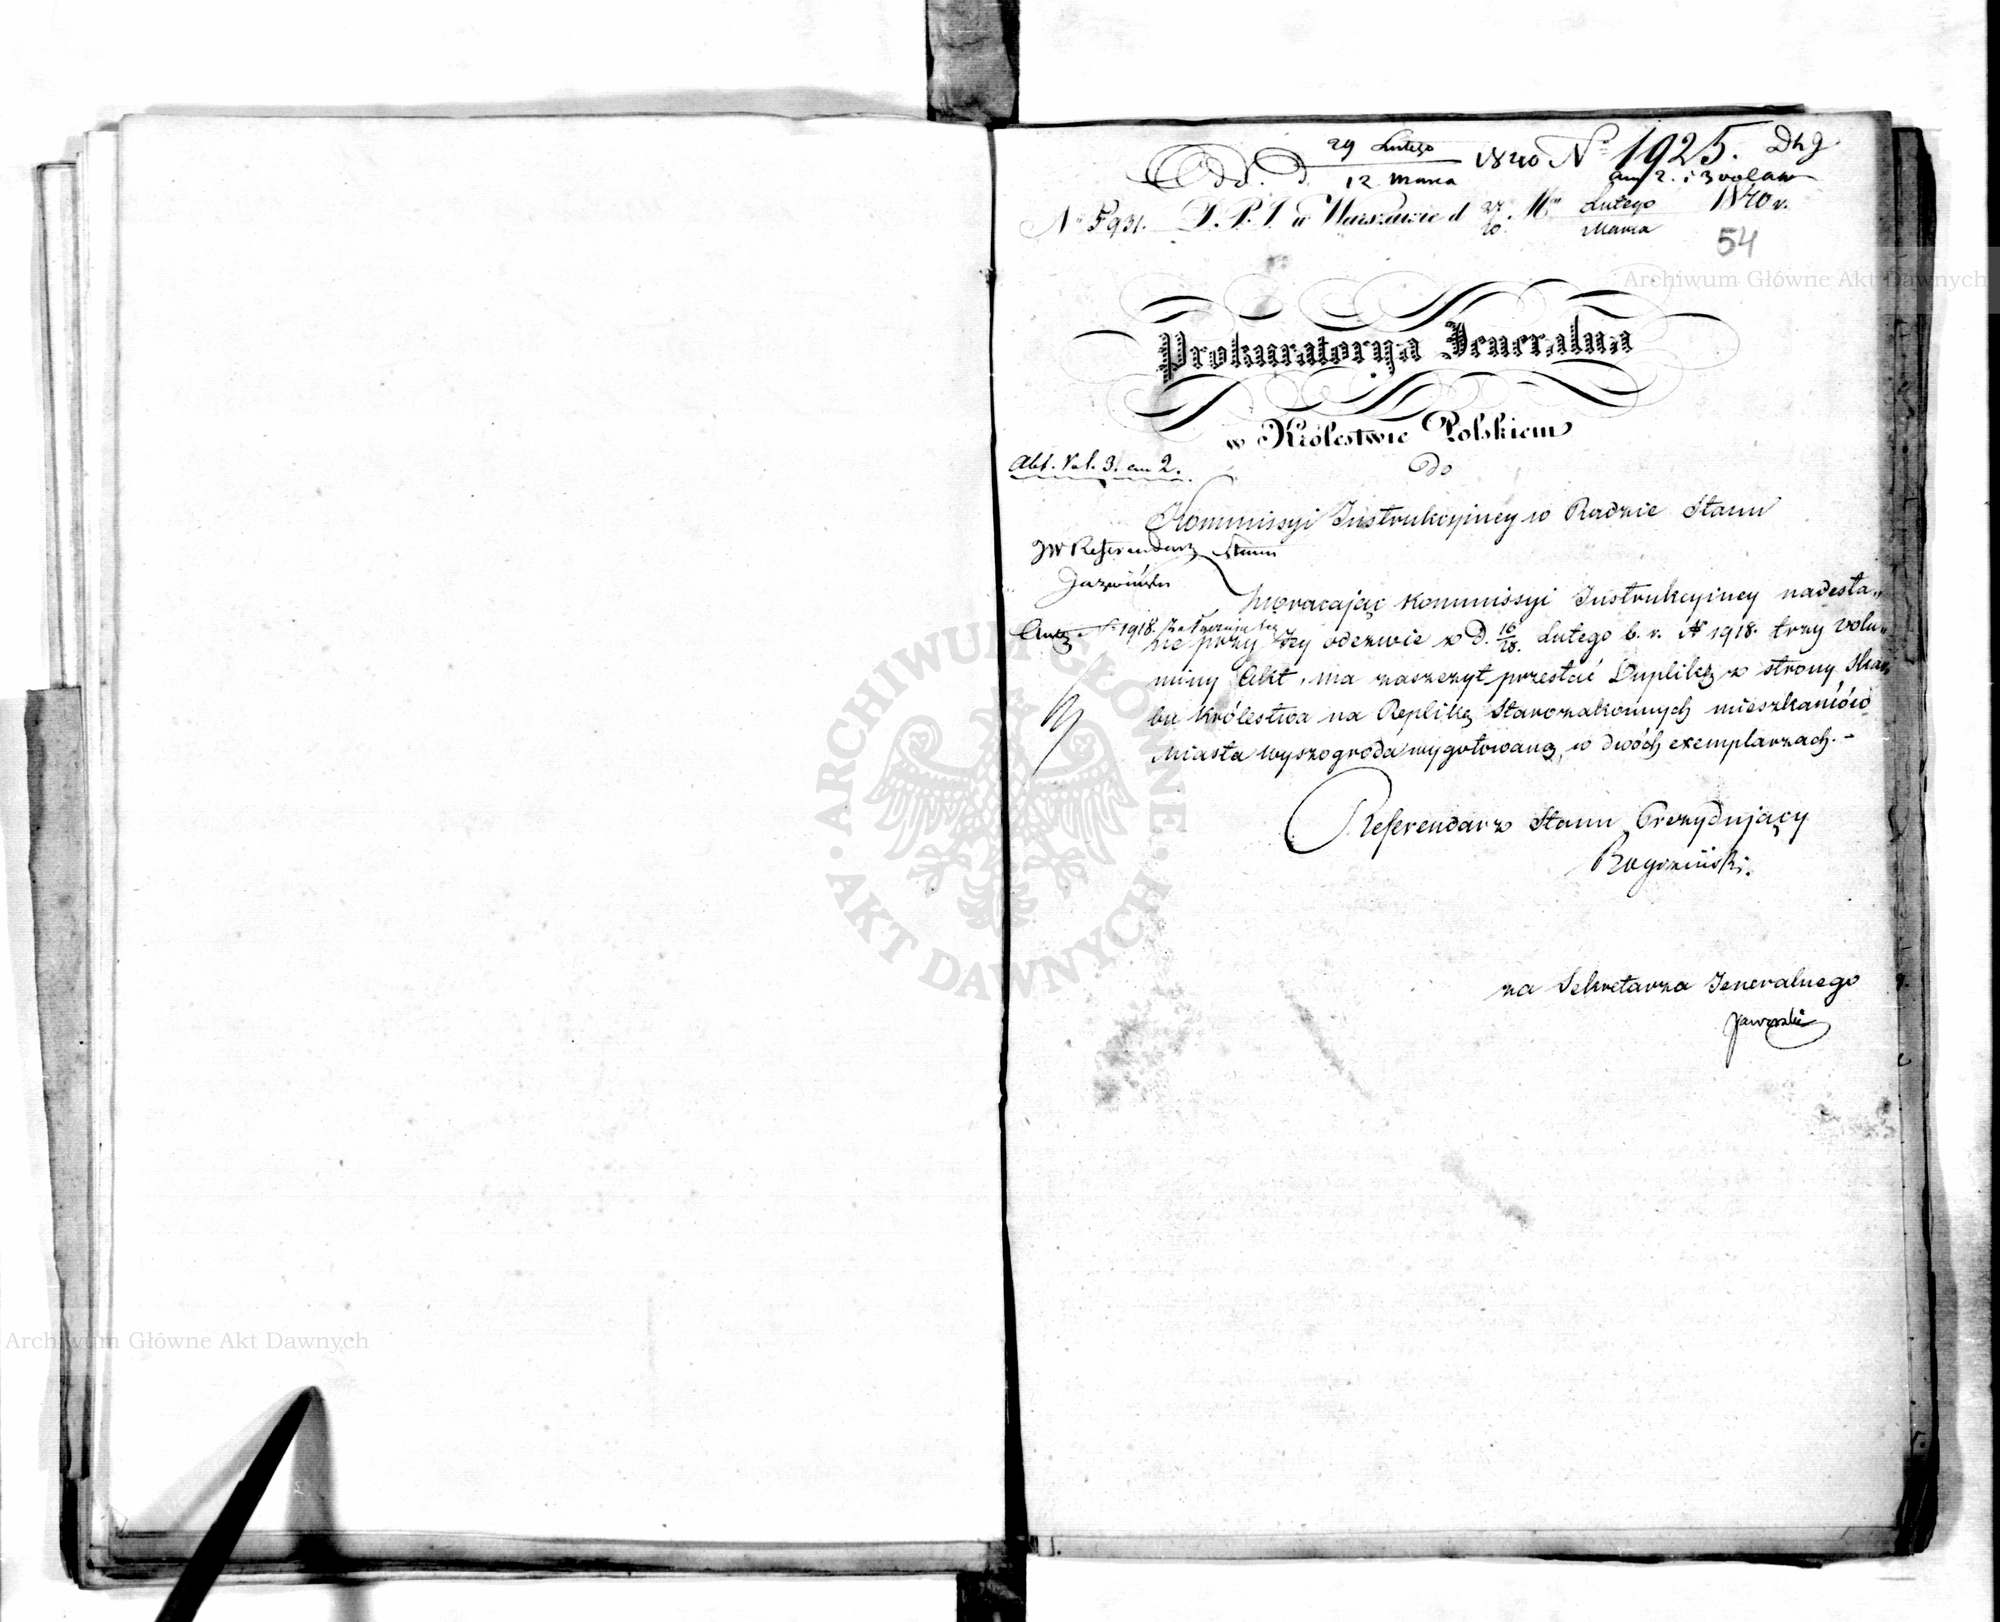 Odd. d. 29 Lutego / 12 Marca 1840 Nº 1925.
ann 2. i 3 volum
Nº 5931. D. P. I. w Warszawie d 27/10 Lutego / Marca 1840 r.
54
Archiwum Główne Akt Dawnych
Prokuratorya Jeneralna
w Królestwie Polskiem
do
Akt. Vol. 3. ann 2.
Kommissyi Instrukcyiney w Radzie Stanu
JW Referendarz Stanu
Wracając Kommissyi Instrukcyiney nadesła„
1918.
ne przy Jey odezwie z d. 16/28. Lutego b. r. Nº 1918. trzy volu„
miny Akt, ma zaszczyt przesłać Duplikę z strony Skar„
bu Królestwa na Replikę Starozakonnych mieszkańców
Miasta Wyszogroda wygotowaną, w dwóch exemplarzach. -
Referendarz Stanu Prezydujący
za Sekretarza Jeneralnego
Jaworski
ARCHIWUM GŁÓWNE AKT DAWNYCH
Archiwum Główne Akt Dawnych